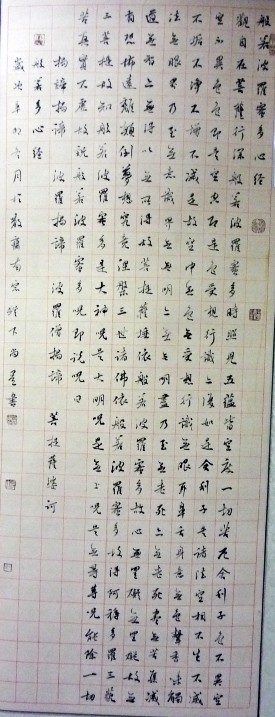 般若波羅蜜多心經
觀自在菩薩行深般若波羅蜜多時照見五蘊皆空度一切苦厄舍利子色不異空
空不異色色即是空空即是色受想行識亦復如是舍利子是諸法空相不生不滅
不垢不淨不增不減是故空中無色無受想行識無眼耳鼻舌身意無色聲香味觸
法無眼界乃至無意識界無無明亦無無明盡乃至無老死亦無老死盡無苦集滅
道無智亦無得以無所得故菩提薩埵依般若波羅蜜多故心無罣礙無罣礙故無
有恐怖遠離顛倒夢想究竟涅槃三世諸佛依般若波羅蜜多故得阿耨多羅三藐
三菩提故知般若波羅蜜多是大神呪是大明呪是無上呪是無等等呪能除一切
苦真實不虛故說般若波羅蜜多呪即說呪曰
揭諦揭諦 波羅揭諦 波羅僧揭諦 菩提薩婆訶
般若多心經
歲次辛卯 月於